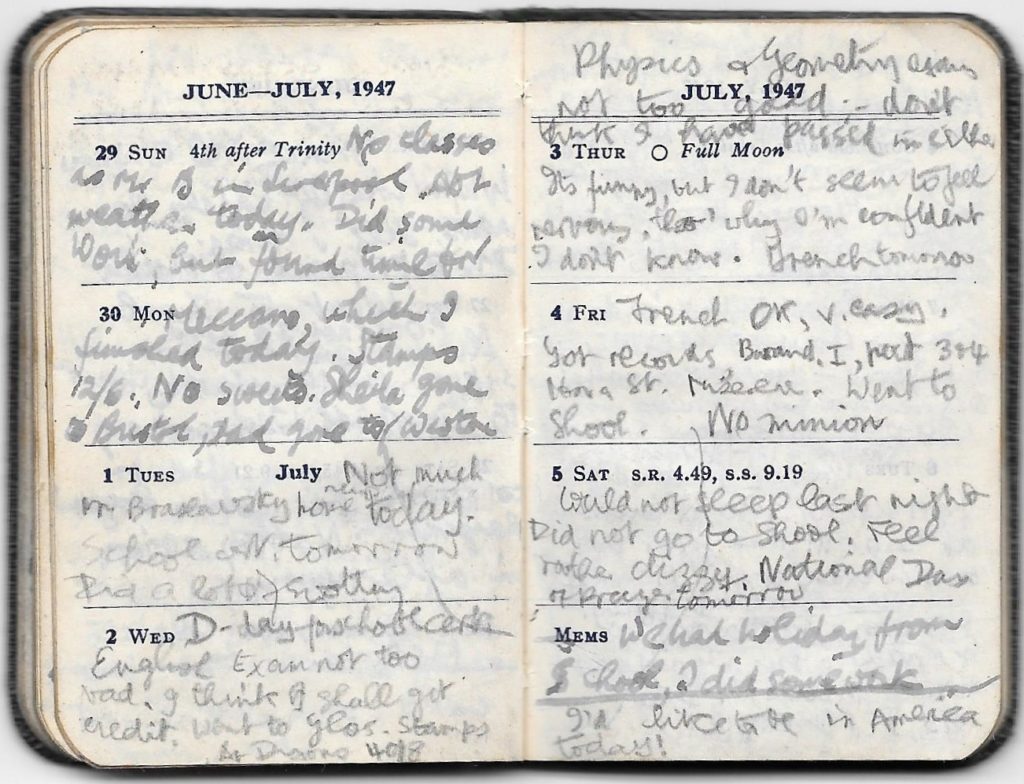 JUNE—JULY, 1947
29 SUN 4th after Trinity No classes
as Mr. B in Liverpool. Hot
weather today. Did some
Work, but found time for
30 MON Meccano, which I
finished today. Stamps
12/6. No sweets. Sheila gone
to Bristol, Dad gone to Weston
1 TUES July Not much
Mr Braslawsky home today.
School cert. tomorrow
Did a lot of swotting
2 WED D-day for school cert
English Exam not too
bad. I think I shall get
credit. Went to Glos. Stamps
Dragons 40/8
Physics & Geometry exams
JULY, 1947
not too good :- don't
think I have passed in either
3 THUR Full Moon
Its funny, but I don't seem to feel
nervous, tho' why I'm confident
I don't know. French tomorrow
4 FRI French OK, v. easy.
Got records I, part 3+4
St. Went to
Shool. No minion
5 SAT S.R. 4.49, S.S. 9.19
Could not sleep last night
Did not go to Shool. Feel
rather dizzy. National Day
of Prayer tomorrow
MEMS We had holiday from
School, I did some work
I'd like to be in America
today!